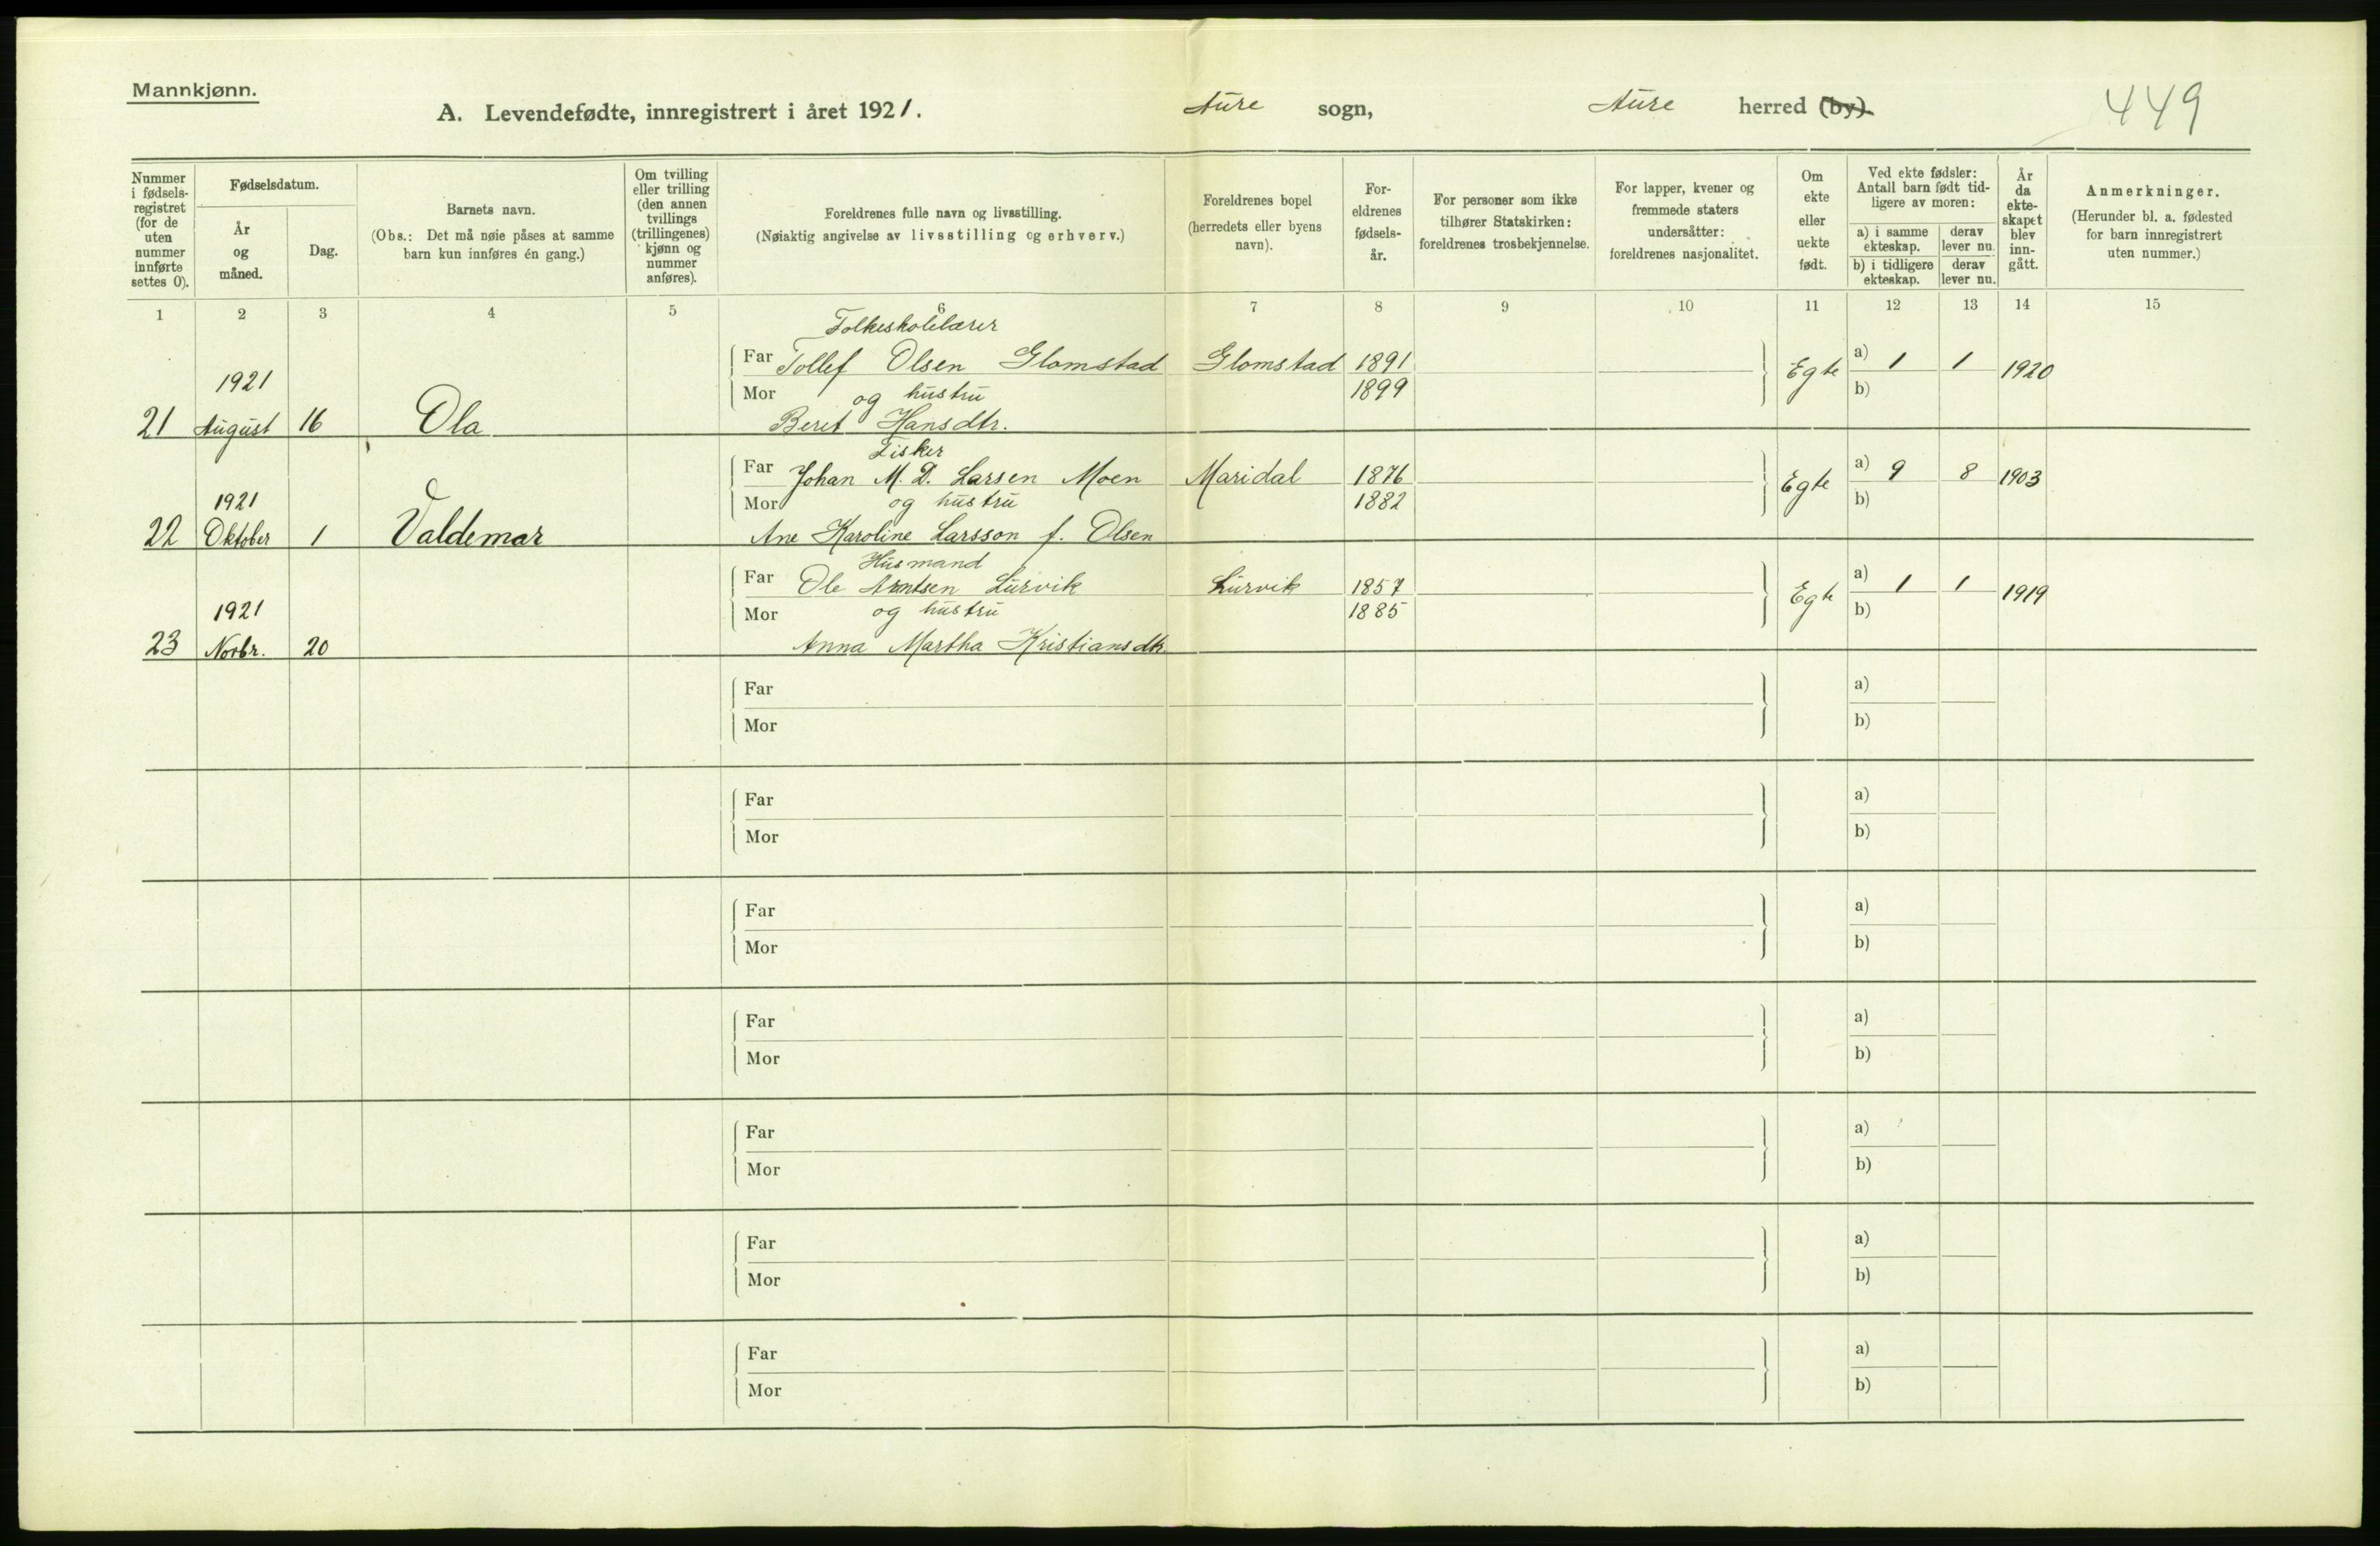 Mannkjønn.
A. Levendefødte, innregistrert i året 1921. Aure sogn, Aure herred (by). 449
Nummer i fødsels-registret (for de uten nummer innførte settes 0).
Fødselsdatum.
År og måned.
Dag.
Barnets navn.
(Obs.: Det må nøie påses at samme barn kun innføres én gang.)
Om tvilling eller trilling (den annen tvillings (trillingenes) kjønn og nummer anføres).
Foreldrenes fulle navn og livsstilling.
(Nøiaktig angivelse av livsstilling og erhverv.)
Foreldrenes bopel (herredets eller byens navn).
For-eldrenes fødsels-år.
For personer som ikke tilhører Statskirken: foreldrenes trosbekjennelse.
For lapper, kvener og fremmede staters undersåtter: foreldrenes nasjonalitet.
Om ekte eller uekte født.
Ved ekte fødsler: Antall barn født tid-ligere av moren:
a) i samme ekteskap. derav lever nu.
b) i tidligere ekteskap. derav lever nu.
År da ekte-skapet blev inn-gått.
Anmerkninger.
(Herunder bl. a. fødested for barn innregistrert uten nummer.)
1 2 3 4 5 6 7 8 9 10 11 12 13 14 15
Folkeskolelærer
Far Tollef Olsen Glomstad Glomstad 1891 Egte a) 1 1 1920
1921
Mor og hustru 1899 b)
21 August 16 Ola Beret Hansdtr.
Fisker
Far Johan M. D. Larsen Moen Maridal 1876 Egte a) 9 8 1903
1921
Mor og hustru 1882 b)
22 Oktober 1 Valdemar Ane Karoline Larsson f. Olsen
Husmand
Far Ole Arntsen Lurvik Lurvik 1857 Egte a) 1 1 1919
1921
Mor og hustru 1885 b)
23 Novbr. 20 Anna Martha Kristiansdtr.
Far a)
Mor b)
Far a)
Mor b)
Far a)
Mor b)
Far a)
Mor b)
Far a)
Mor b)
Far a)
Mor b)
Far a)
Mor b)